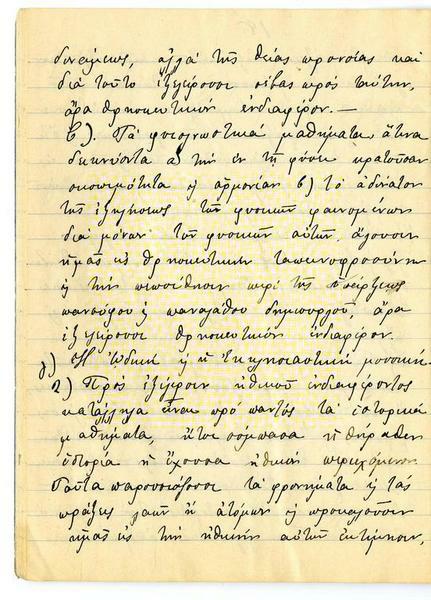 δυνάμεως, ἀλλὰ τῆς θείας προνοίας καὶ
διὰ τοῦτο ἐξεγείρουσι σέβας πρὸς ταύτην,
ἄρα θρησκευτικὸν ἐνδιαφέρον.—
β). Τὰ φυσιογνωστικὰ μαθήματα, ἅτινα
δεικνύοντα α) τὴν ἐν τῇ φύσει κρατοῦσαν
σκοπιμότητα ἢ ἁρμονίαν β) τὸ ἀδύνατον
τῆς ἐξηγήσεως τῶν φυσικῶν φαινομένων
διὰ μόνων τῶν φυσικῶν αὐτῶν, ἄγουσιν
ἡμᾶς εἰς θρησκευτικὴν ταπεινοφροσύνην
ἢ τὴν πεποίθησιν περὶ τῆς ὑπάρξεως
πανσόφου ἢ παναγάθου δημιουργοῦ, ἄρα
ἐξεγείρουσι θρησκευτικὸν ἐνδιαφέρον.
γ) Ἡ Ὠδικὴ ἢ ἡ Ἐκκλησιαστικὴ μουσική.
2) Πρὸς ἐξέγερσιν ἠθικοῦ ἐνδιαφέροντος
κατάλληλα εἶναι πρὸ παντὸς τὰ ἱστορικὰ
μαθήματα, ἤτοι σύμπασα ἡ θύραθεν
ἱστορία ἡ ἔχουσα ἠθικὸν περιεχόμενον.
Ταῦτα παρουσιάζουσι τὰ φρονήματα ἢ τὰς
πράξεις λαῶν ἢ ἀτόμων ἢ προκαλοῦσιν
ἡμᾶς εἰς τὴν ἠθικὴν αὐτῶν ἐκτίμησιν,